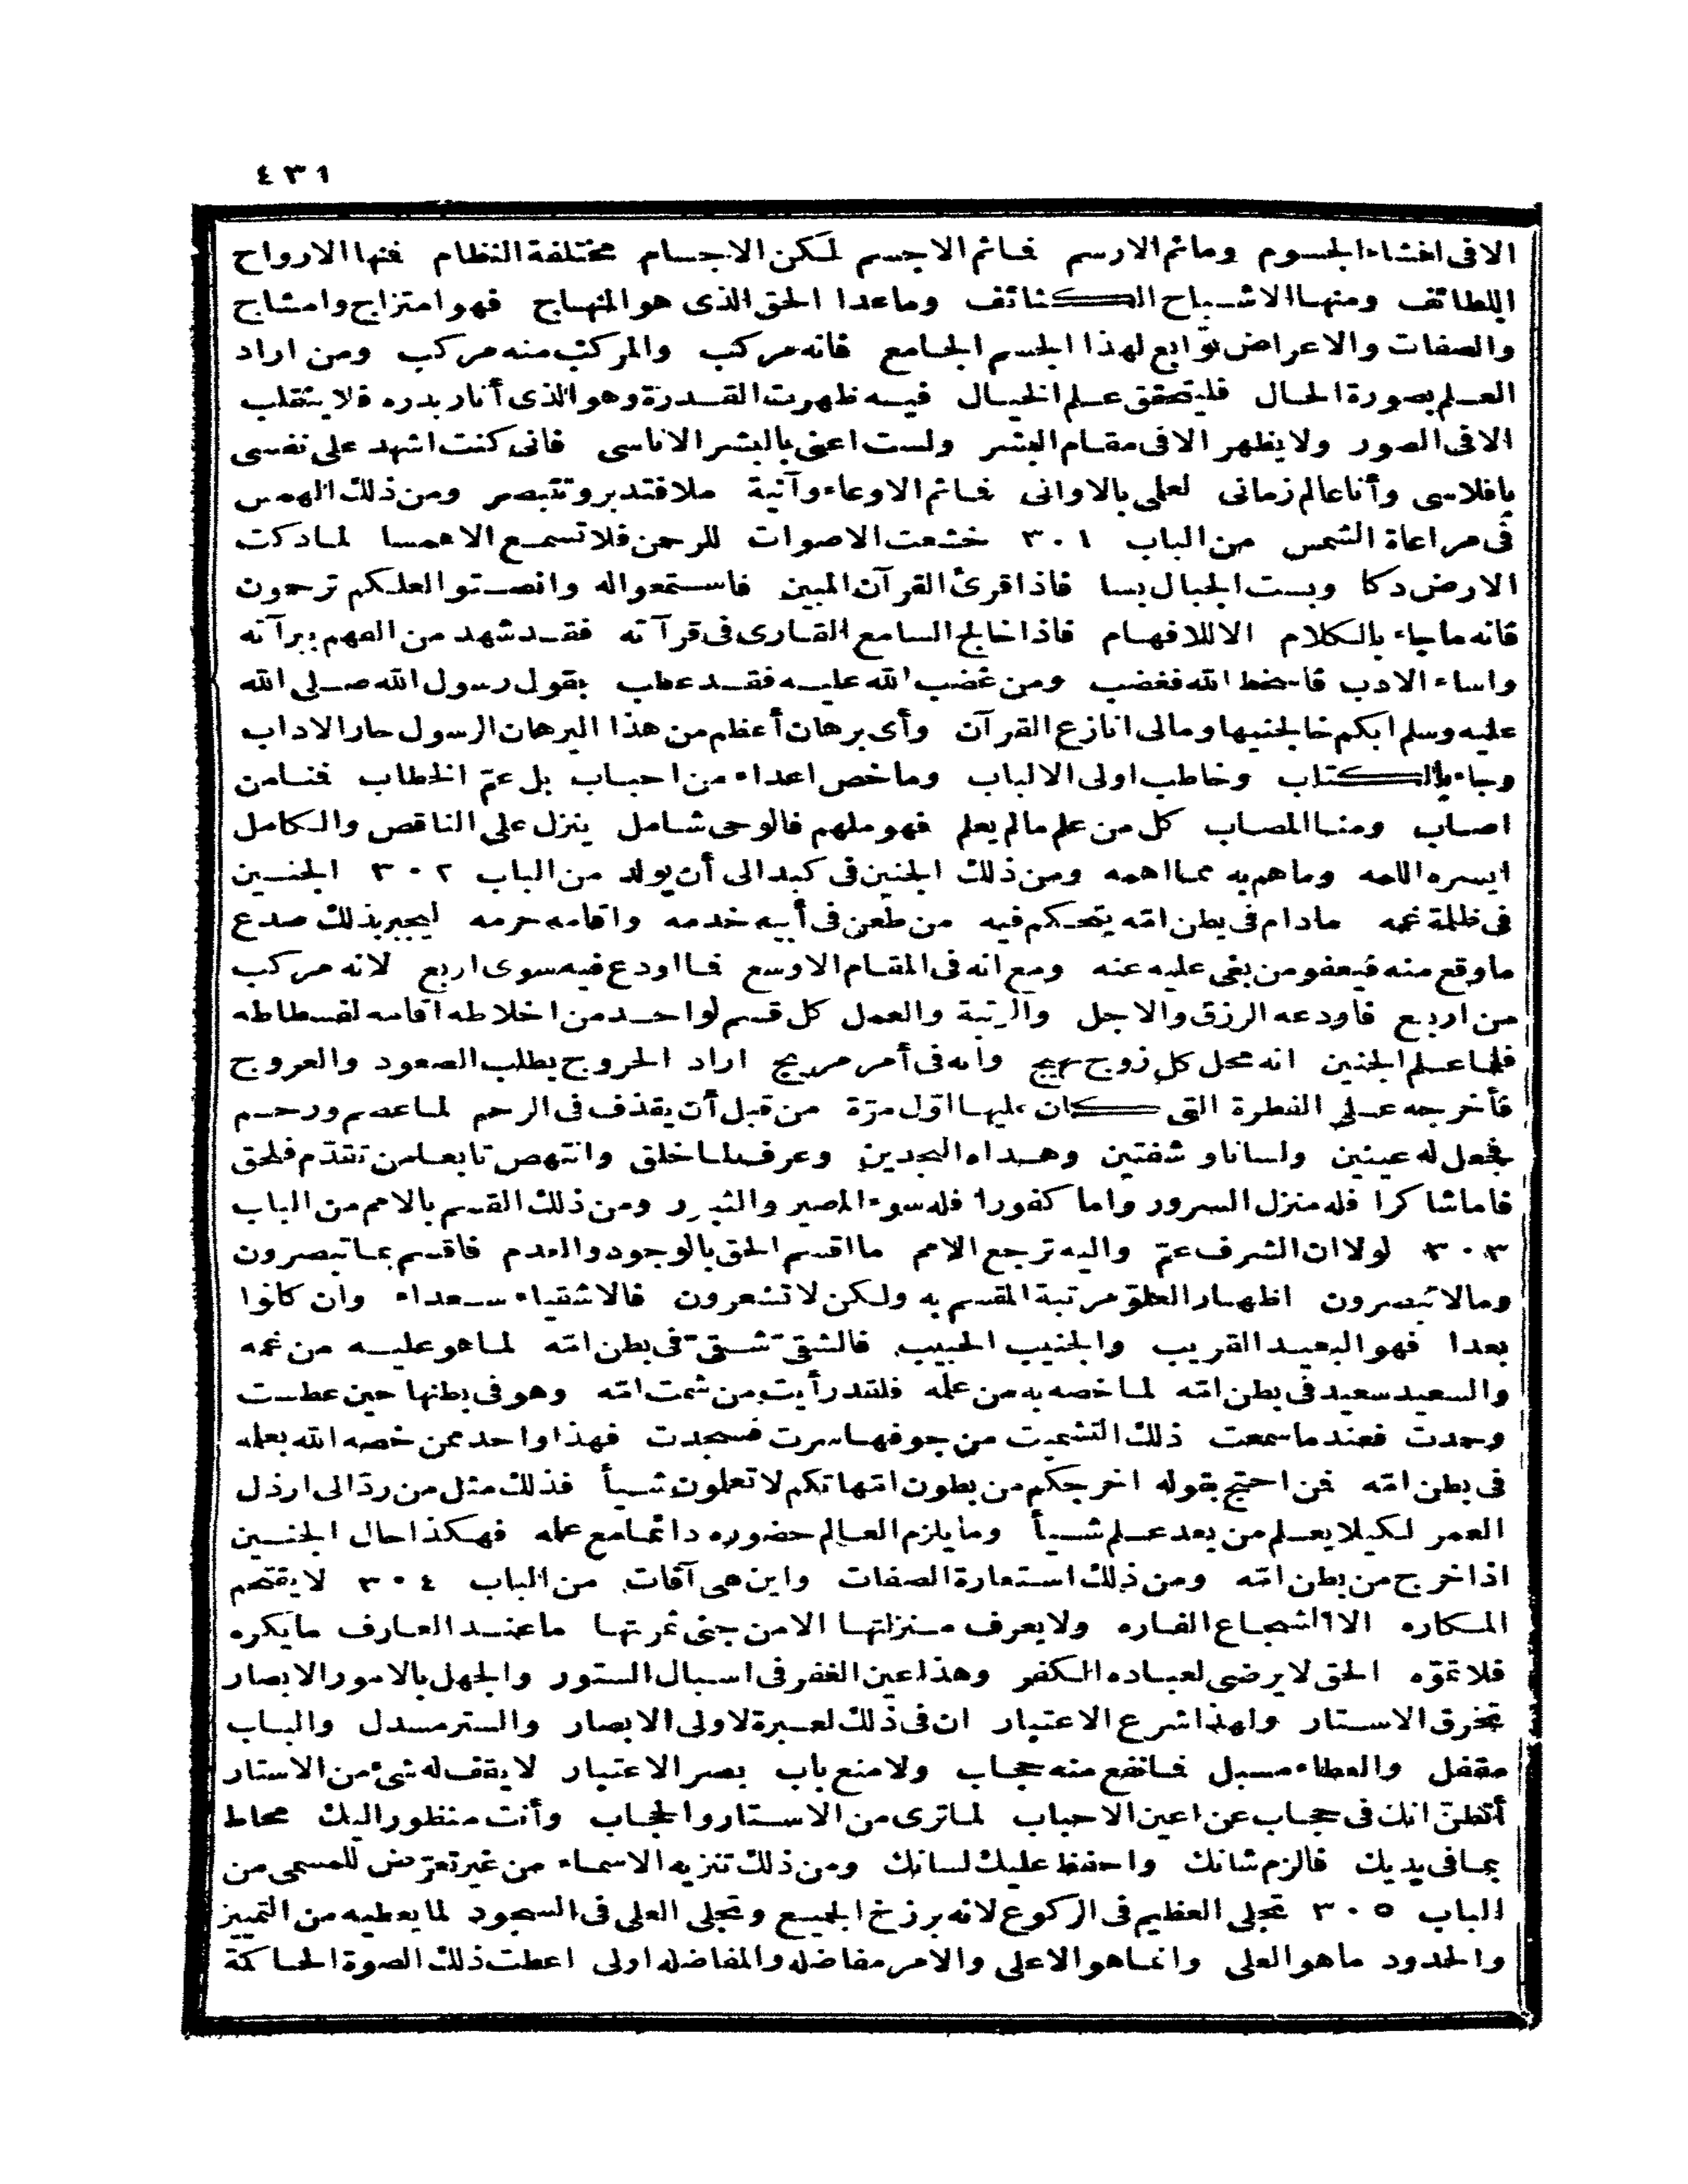 ٤٣١
الا فى افشاء الجسوم وماثم الارسم فماثم الاجسم لكن الاجسام مختلفة النظام فنها الارواح
اللطائف ومنها الاشباح الكثائف وماعدا الحق الذى هو المنهاج فهو امتزاج وامشاج
والصفات والاعراض توابع لهذا الجسم الجامع فانه مركب والمركب منه مركب ومن اراد
العلم بصورة الحال فليتحقق علم الخيال فيه ظهرت القدرة وهو الذى أنار بدره فلا يتقلب
الا فى الصور ولا يظهر الا فى مقام البشر ولست اعنى بالبشر الاناسى فانى كنت اشهد على نفسى
بافلاسى وأنا عالم زمانى لعلمى بالاوانى فماثم الاوعاء وآنية ملا فتدبر وتتبصر ومن ذلك الهمس
فى مراعاة الشمس من الباب ٣٠١ خشعت الاصوات للرحمن فلا تسمع الا همسا لمادكت
الارض دكا وبست الجبال بسا فاذا قرئ القرآن المبين فاستمعوا له وانصتوا لعلكم ترحمون
فانه ماجاء بالكلام الا للافهام فاذا خالج السامع القارى فى قرآنه فقد شهد من الفهم ببرآته
واساء الادب فاسخط الله فغضب ومن غضب الله عليه فقد عطب بقول رسول الله صلى الله
عليه وسلم ايكم خالجنيها ومالى انازع القرآن وأى برهان أعظم من هذا البرهان الرسول حاز الاداب
وجاء بالكتاب وخاطب اولى الالباب وماخص اعداء من احباب بل عمّ الخطاب فنامن
اصاب ومنا المصاب كل من علم مالم يعلم فهو ملهم فالوحى شامل ينزل على الناقص والكامل
ايسره اللمه وماهم به مما اهمه ومن ذلك الجنين فى كبد الى أن يولد من الباب ٣٠٢ الجنين
فى ظلمة غمه مادام فى بطن امّه يتحكم فيه من طعن فى أبيه خدمه واقامه حرمه ليجبر بذلك صدع
ماوقع منه فيعفو من بغى عليه عنه ومع انه فى المقام الاوسع فما اودع فيه سوى اربع لانه مركب
من اربع فاودعه الرزق والاجل والرتبة والعمل كل قسم لواحد من اخلاطه اقامه لفسطاطه
فلما علم الجنين انه محل كل زوج بهيج وانه فى أمر مريج اراد الخروج بطلب الصعود والعروج
فأخرجه على الفطرة التى كان عليها اوّل مرّة من قبل أن يقذف فى الرحم لما عصم ورحم
فجعل له عينين ولسانا وشفتين وهداه النجدين وعرف لما خلق وانتهض تابعا من تقدّم فلحق
فاما شاكرا فله منزل السرور واما كفورا فله سوء المصير والثبور ومن ذلك القسم بالامم من الباب
٣٠٣ لولا ان الشرف عمّ واليه ترجع الامم ما اقسم الحق بالوجود والعدم فاقسم بما تبصرون
ومالا تبصرون اظهارا لعلوّ مرتبة المقسم به ولكن لا تشعرون فالاشقياء سعداء وان كانوا
بعدا فهو البعيد القريب والجنيب الحبيب فالشقىّ شقىّ فى بطن امّه لما هو عليه من غمه
والسعيد سعيد فى بطن امّه لما خصه به من علمه فلقد رأيت من شمت امّه وهو فى بطنها حين عطست
وحمدت فعند ماسمعت ذلك التشميت من جوفها سرت فسجدت فهذا واحد ممن خصه الله بعلمه
فى بطن امّه فمن احتج بقوله اخرجكم من بطون امّهاتكم لا تعلمون شيأ فذلك مثل من ردّ الى ارذل
العمر لكيلا يعلم من بعد علم شيأ وما يلزم العالم حضوره دائما مع علمه فهكذا حال الجنين
اذا خرج من بطن امّه ومن ذلك استعارة الصفات واين هى آفات من الباب ٣٠٤ لا يقتحم
المكاره الا الشجاع الفاره ولا يعرف منزلتها الا من جنى ثمرتها ما عند العارف ما يكره
فلا تموّه الحق لا يرضى لعباده الكفر وهذا عين الغفر فى اسبال الستور والجهل بالامور الابصار
تخرق الاستار ولهذا شرع الاعتبار ان فى ذلك لعبرة لاولى الابصار والستر مسدل والباب
مقفل والعطاء مسبل فمانفع منه حجاب ولا منع باب بصر الاعتبار لا يقف له شئ من الاستار
أتظنّ انك فى حجاب عن اعين الاحباب لما ترى من الاستار والحجاب وأنت منظور اليك محاط
بما فى يديك فالزم شانك واحفظ عليك لسانك ومن ذلك تنزيه الاسماء من غير تعرّض للمسمى من
الباب ٣٠٥ تجلى العظيم فى الركوع لانه برزخ الجميع وتجلى العلى فى السجود لما يعطيه من التمييز
والحدود ماهو العلى وانما هو الاعلى والامر مفاضله والمفاضله اولى اعطت ذلك الصوة الحاكمة